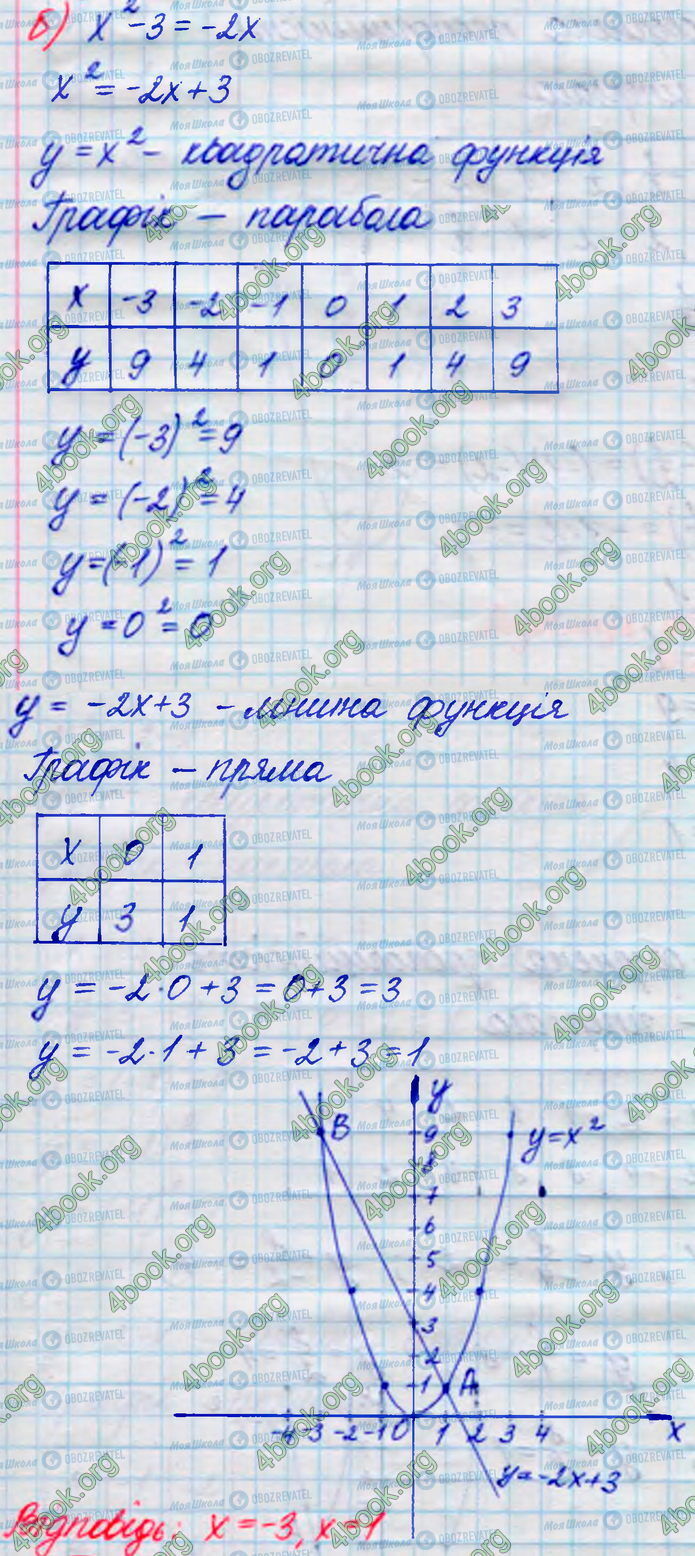 б) x² - 3 = -2x
x² = -2x + 3
y = x² - квадратична функція
Графік — парабола
x -3 -2 -1 0 1 2 3
y 9 4 1 0 1 4 9
y = (-3)² = 9
y = (-2)² = 4
y = (-1)² = 1
y = 0² = 0
y = -2x+3 - лінійна функція
Графік — пряма
x 0 1
y 3 1
y = -2·0 + 3 = 0+3 = 3
y = -2·1 + 3 = -2+3 = 1
y
B 9 y = x²
8
7
6
5
4
3
2
1 A
-4 -3 -2 -1 0 1 2 3 4 x
y = -2x+3
Відповідь: x = -3, x = 1
4book.org
МояШкола OBOZREVATEL